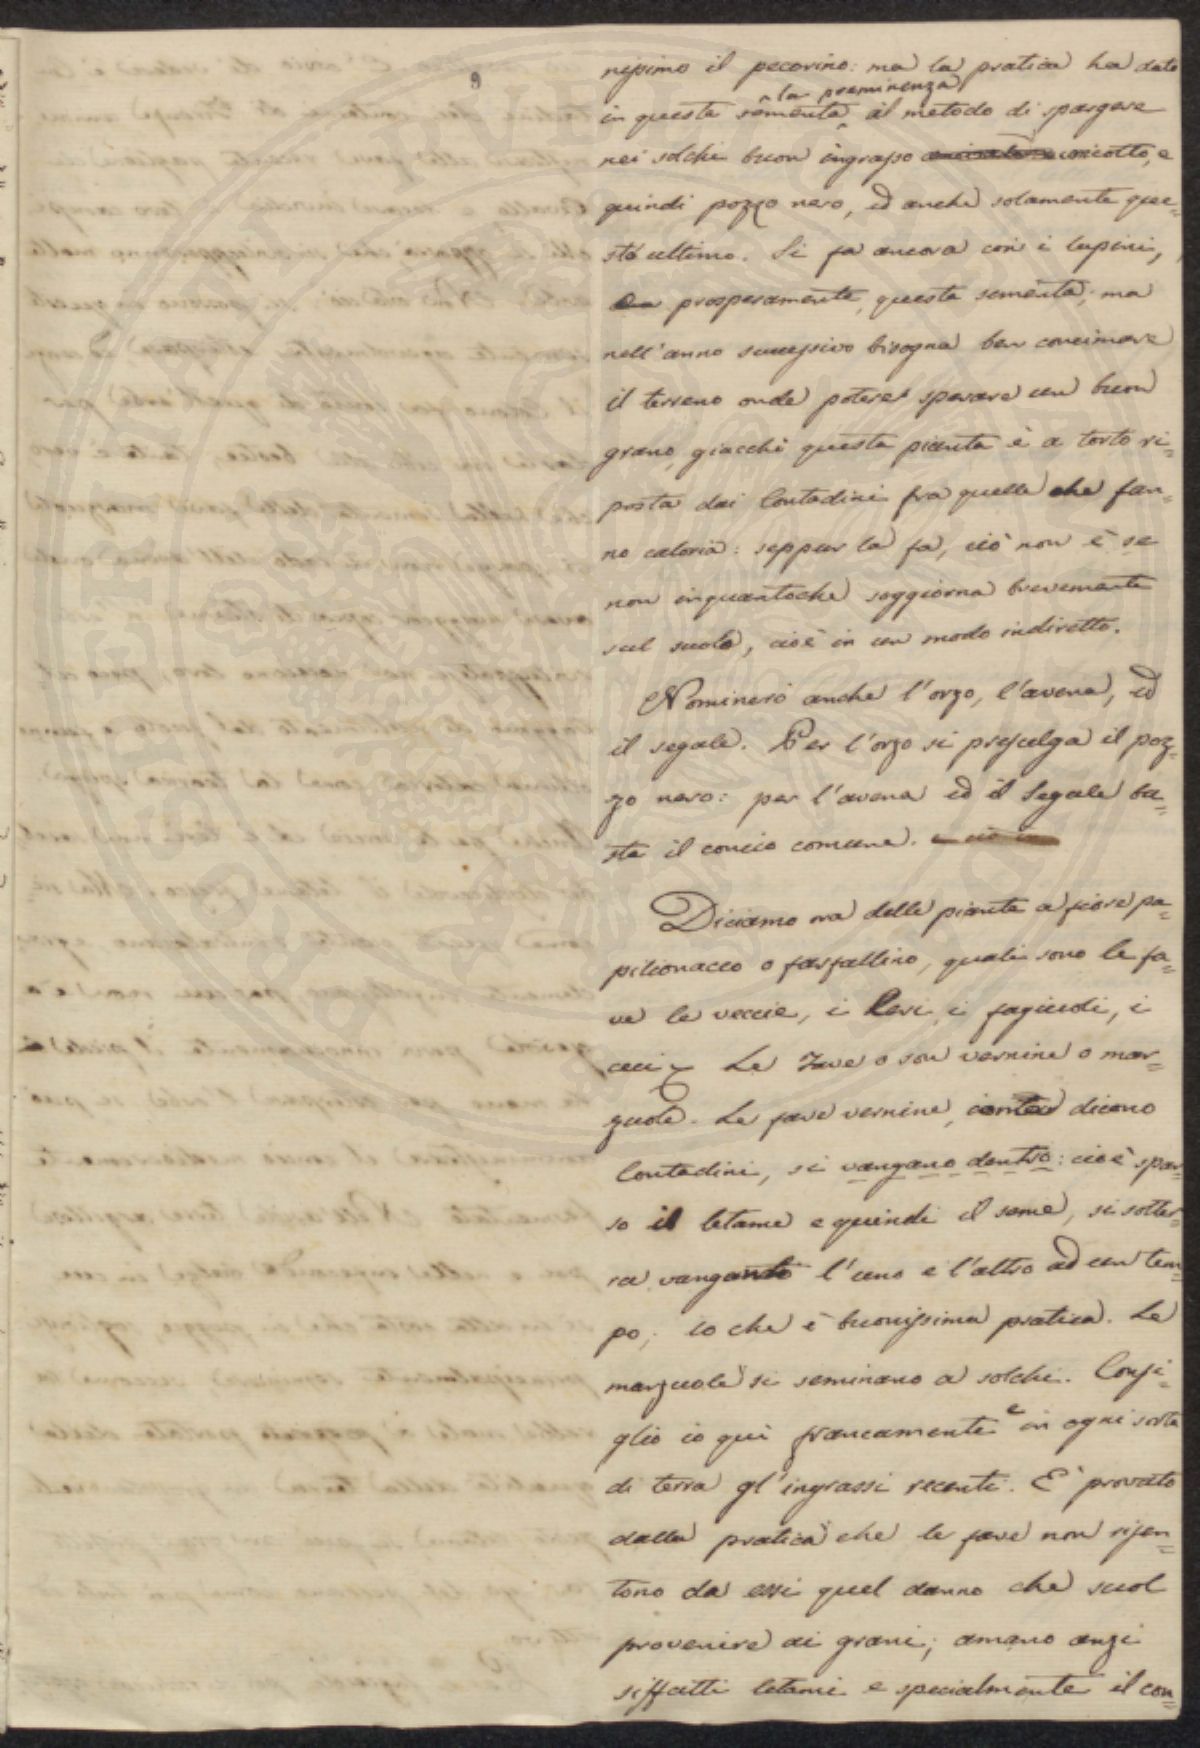 9
nissimo il pecorino: ma la pratica ha dato
la preminenza
in questa sementa al metodo di spargere
nei solchi buon ingrasso concotto, e
quindi pozzo nero, ed anche solamente que=
st'ultimo. Si fa ancora con i lupini,
prosperamente, questa sementa; ma
nell'anno successivo bisogna ben concimare
il terreno onde potere sperare un buon
grano, giacchè questa pianta è a torto ri=
posta dai Contadini fra quelle che fan=
no caloria: seppur la fa, ciò non è se
non inquantochè soggiorna brevemente
sul suolo, cioè in un modo indiretto.
Nominerò anche l'orzo, l'avena, ed
il segale. Per l'orzo si prescelga il poz=
zo nero: per l'avena ed il Segale ba=
sta il concio comune. e ciò
Diciamo ora delle piante a fiore pa=
pilionaceo o farfallino, quali sono le fa=
ve le veccie, i ceci i fagiuoli, i
ceci Le Fave o son vernine o mar=
zuole. Le fave vernine, dicono
Contadini, si vangano dentro: cioè spar=
so il letame e quindi il seme, si sotter=
ra vangando l'uno e l'altro ad un tem=
po; lo che è buonissima pratica. Le
marzuole si seminano a solchi. Consi=
glio io qui francamente e in ogni sorta
di terra gl'ingrassi recenti. E' provato
dalla pratica che le fave non risen=
tono da essi quel danno che suol
provenire ai grani; amano anzi
siffatti letami e specialmente il con=